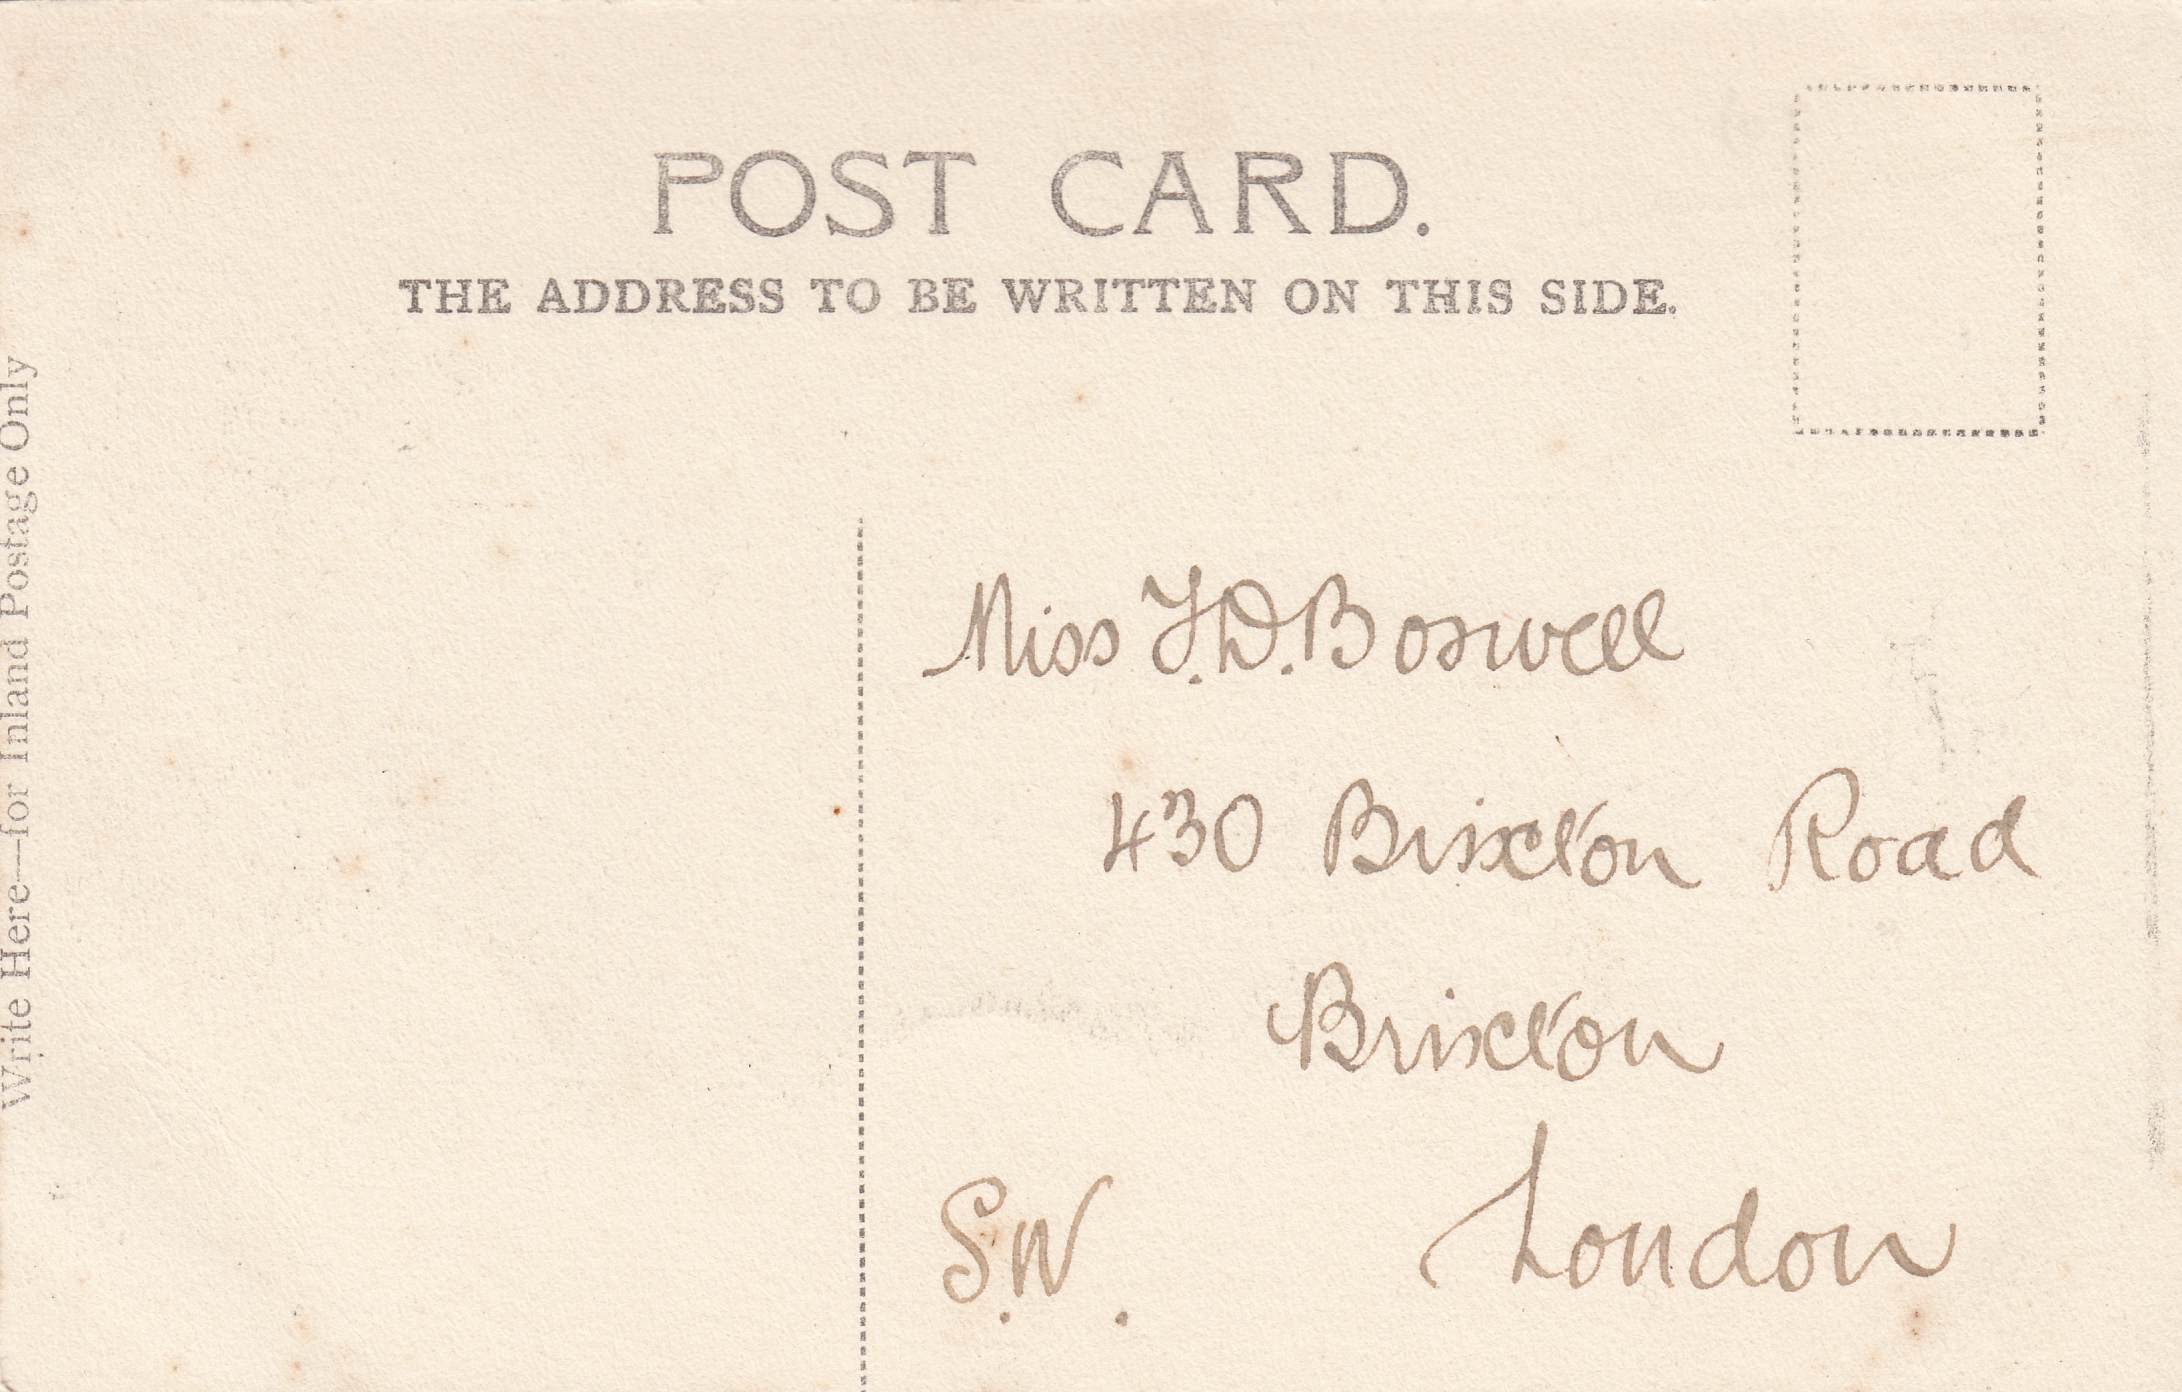 POST CARD.
THE ADDRESS TO BE WRITTEN ON THIS SIDE.
Write Here—for Inland Postage Only
Miss F.D. Boswell
430 Brixton Road
Brixton
London
S.W.